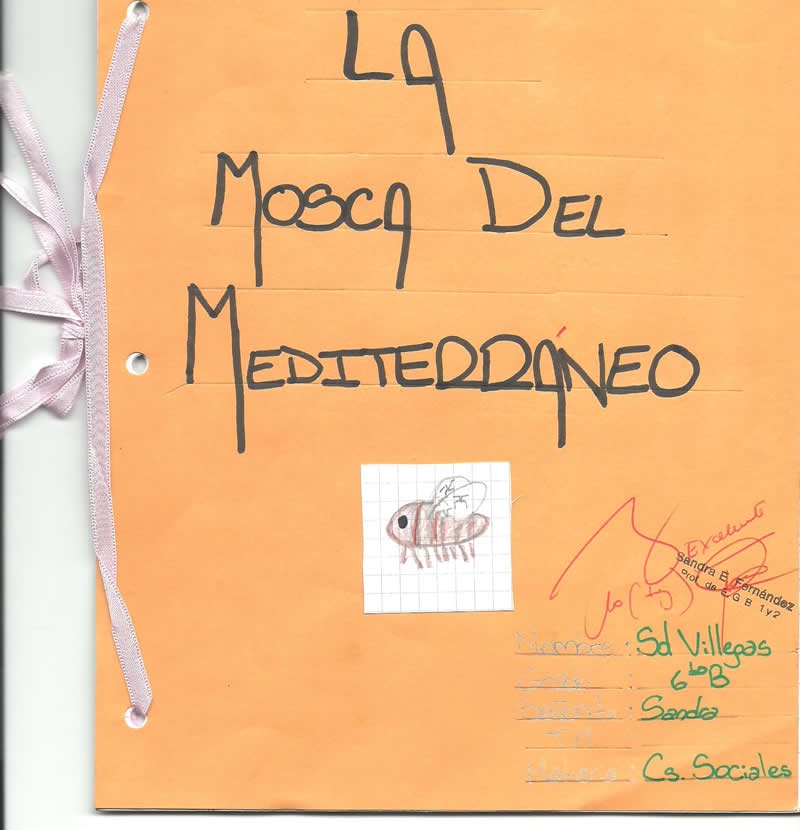 LA
MOSCA DEL
MEDITERRÁNEO
Excelente
Sandra E. Fernández
Prof. de E.G.B 1y2
Nombre : Sol Villegas
Grado : 6to B
Señorita : Sandra
T.M
Materia : Cs. Sociales